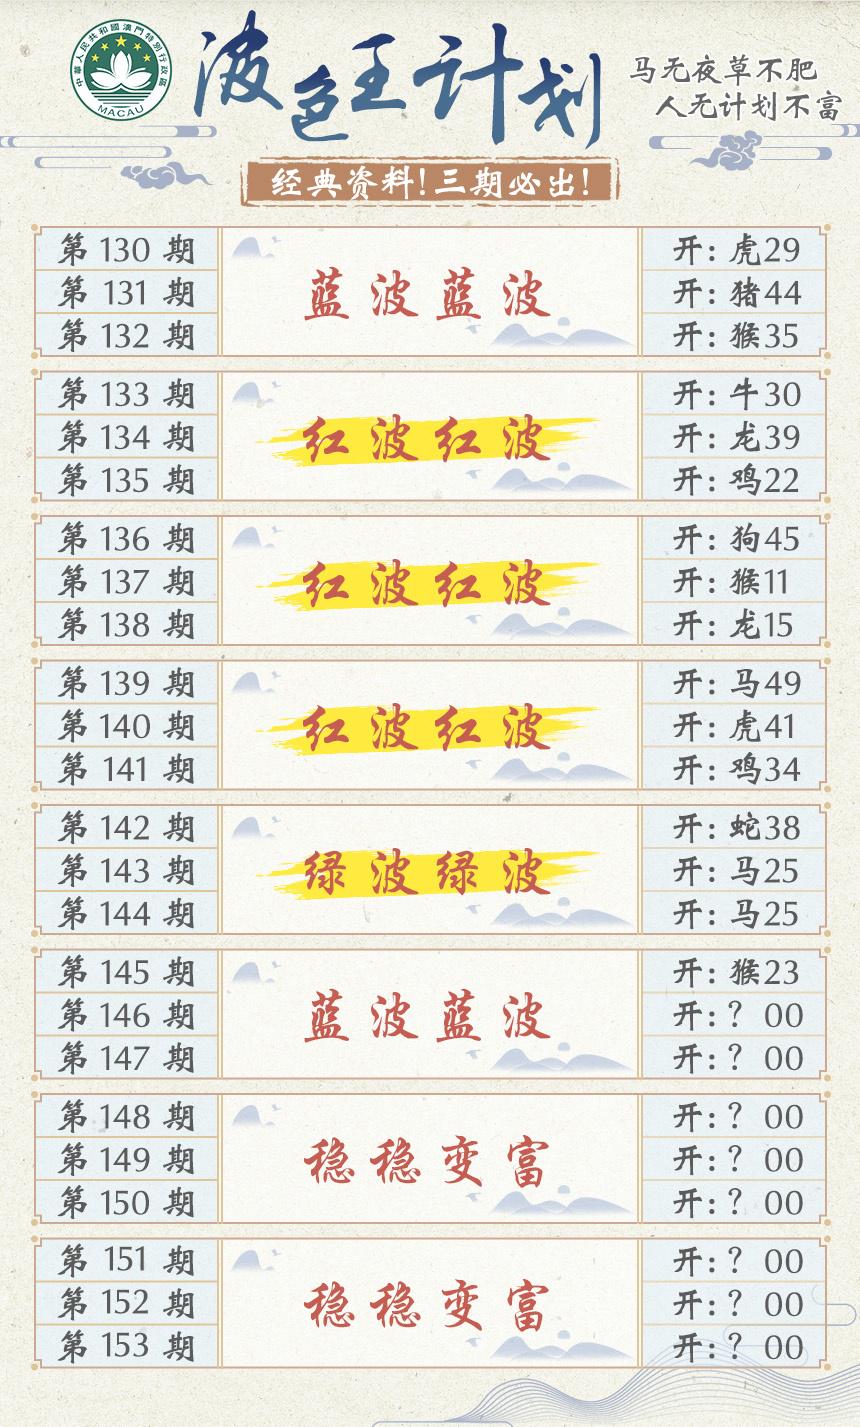 中華人民共和國澳門特別行政區
MACAU
波色王计划
马无夜草不肥
人无计划不富
经典资料!三期必出!
第 130 期 开: 虎29
第 131 期 蓝波蓝波 开: 猪44
第 132 期 开: 猴35
第 133 期 开: 牛30
第 134 期 红波红波 开: 龙39
第 135 期 开: 鸡22
第 136 期 开: 狗45
第 137 期 红波红波 开: 猴11
第 138 期 开: 龙15
第 139 期 开: 马49
第 140 期 红波红波 开: 虎41
第 141 期 开: 鸡34
第 142 期 开: 蛇38
第 143 期 绿波绿波 开: 马25
第 144 期 开: 马25
第 145 期 开: 猴23
第 146 期 蓝波蓝波 开: ? 00
第 147 期 开: ? 00
第 148 期 开: ? 00
第 149 期 稳稳变富 开: ? 00
第 150 期 开: ? 00
第 151 期 开: ? 00
第 152 期 稳稳变富 开: ? 00
第 153 期 开: ? 00